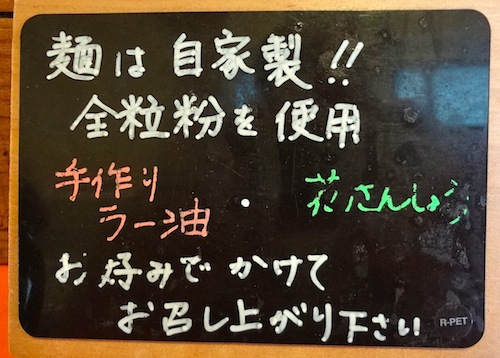 麺は自家製!!
全粒粉を使用
手作り
ラー油 ・ 花さんしょう
お好みでかけて
お召し上がり下さい
R-PET